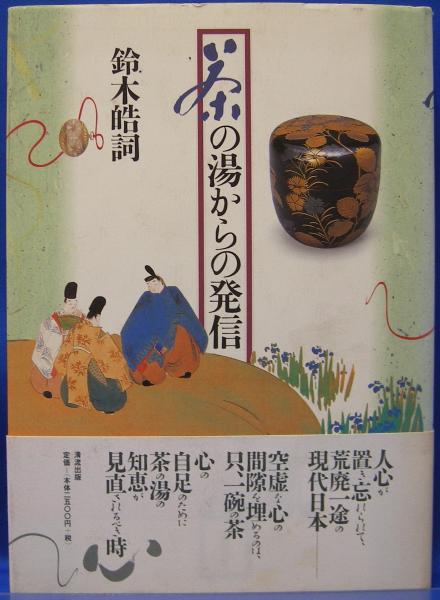 茶の湯からの発信
鈴木皓詞
人心が
置き忘れられて、
荒廃一途の
現代日本──
空虚な心の
間隙を埋めるのは、
只、一碗の茶
心の
自足のために
茶の湯の
知恵が
見直されるべき時
心
清流出版
定価=本体二五〇〇円+税